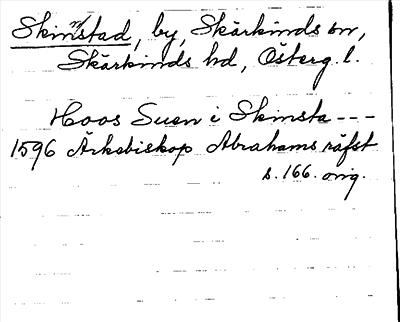 Skinnstad, by, Skärkinds sn,
Skärkinds hd, Österg. l.
Hoos Suen i Skinsta - - -
1596 Ärkebiskop Abrahams räfst
s. 166. orig.